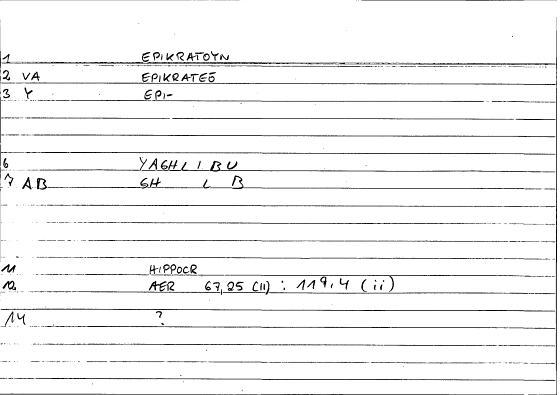 1 EPIKRATOYN
2 VA EPIKRATES
3 Y EPI-
6 YAGHLIBU
7 AB GH L B
11 HIPPOCR
12 AER 67,25 (II) : 119,4 (ii)
14 ?